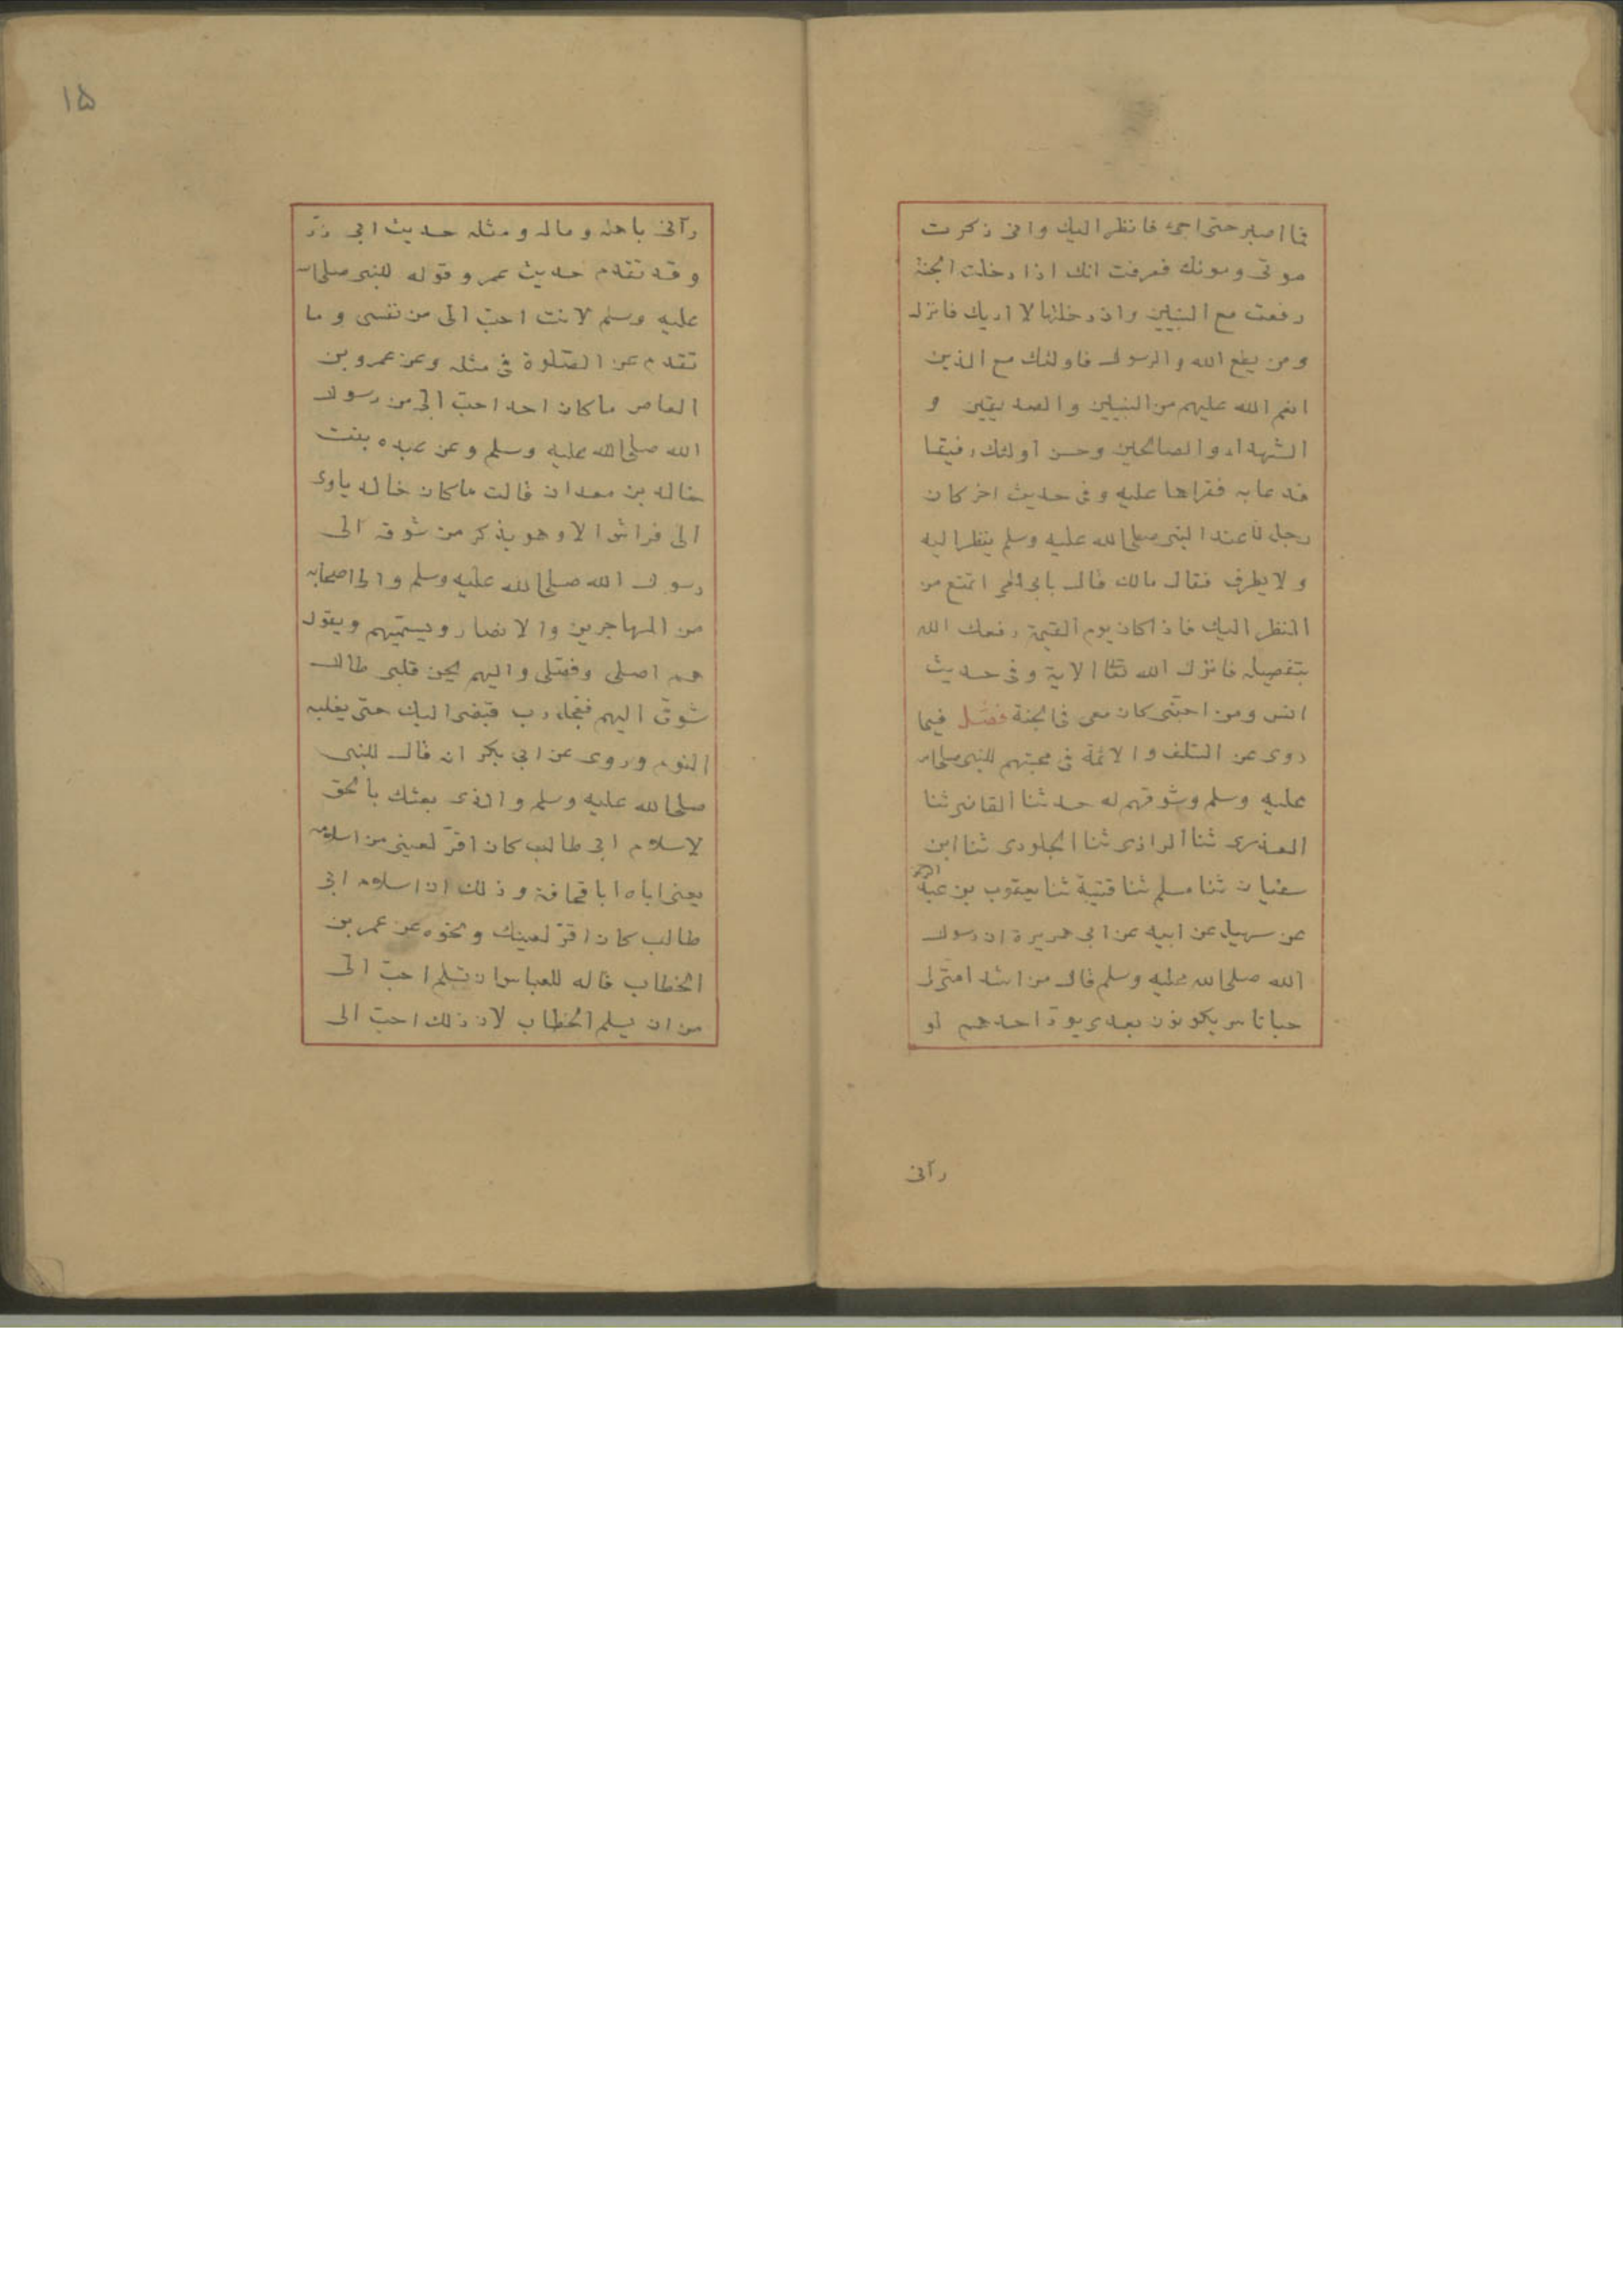 فما اصبر حتى اجئ فانظر اليك وانى ذكرت
موتى وموتك فعرفت انك اذا دخلت الجنة
رفعت مع النبيين وان دخلتها لا اريك فانزل
ومن يطع الله والرسول فاولئك مع الذين
انعم الله عليهم من النبيين والصديقين و
الشهداء والصالحين وحسن اولئك رفيقا
فدعا به فقراها عليه وفى حديث اخر كان
رجل عند النبى صلى الله عليه وسلم ينظر اليه
ولا يطرف فقال مالك قال بابى امى اتمتع من
النظر اليك فاذا كان يوم القيمة رفعك الله
بتفضيله فانزل الله تعا الاية وفى حديث
انس ومن احبنى كان معى فى الجنة فصل فيما
روى عن السلف والائمة فى محبتهم للنبى صلى الله
عليه وسلم وشوقهم له حدثنا القاضى ثنا
العذرى ثنا الرازى ثنا الجلودى ثنا ابن
سفيان ثنا مسلم ثنا قتيبة ثنا يعقوب بن عبد الرحمن
عن سهيل عن ابيه عن ابى هريرة ان رسول
الله صلى الله عليه وسلم قال من اشد امتى لى
حبا ناس يكونون بعدى يود احدهم لو
رآنى
١۵
رآنى باهله وماله ومثله حديث ابى ذر
وقد تقدم حديث عمر وقوله للنبى صلى الله
عليه وسلم لانت احب الى من نفسى وما
تقدم عن الصحابة فى مثله وعن عمرو بن
العاص ماكان احد احب الى من رسول
الله صلى الله عليه وسلم وعن عبده بنت
خالد بن معدان قالت ماكان خالد ياوى
الى فراش الا وهو يذكر من شوقه الى
رسول الله صلى الله عليه وسلم والى اصحابه
من المهاجرين والانصار ويسميهم ويقول
هم اصلى وفصلى واليهم يحن قلبى طال
شوقى اليهم فعجل رب قبضى اليك حتى يغلبه
النوم وروى عن ابى بكر انه قال للنبى
صلى الله عليه وسلم والذى بعثك بالحق
لاسلام ابى طالب كان اقر لعينى من اسلامه
يعنى اباه ابا قحافة وذلك ان اسلام ابى
طالب كان اقر لعينك ونحوه عن عمر بن
الخطاب قاله للعباس ان تسلم احب الى
من ان يسلم الخطاب لان ذلك احب الى